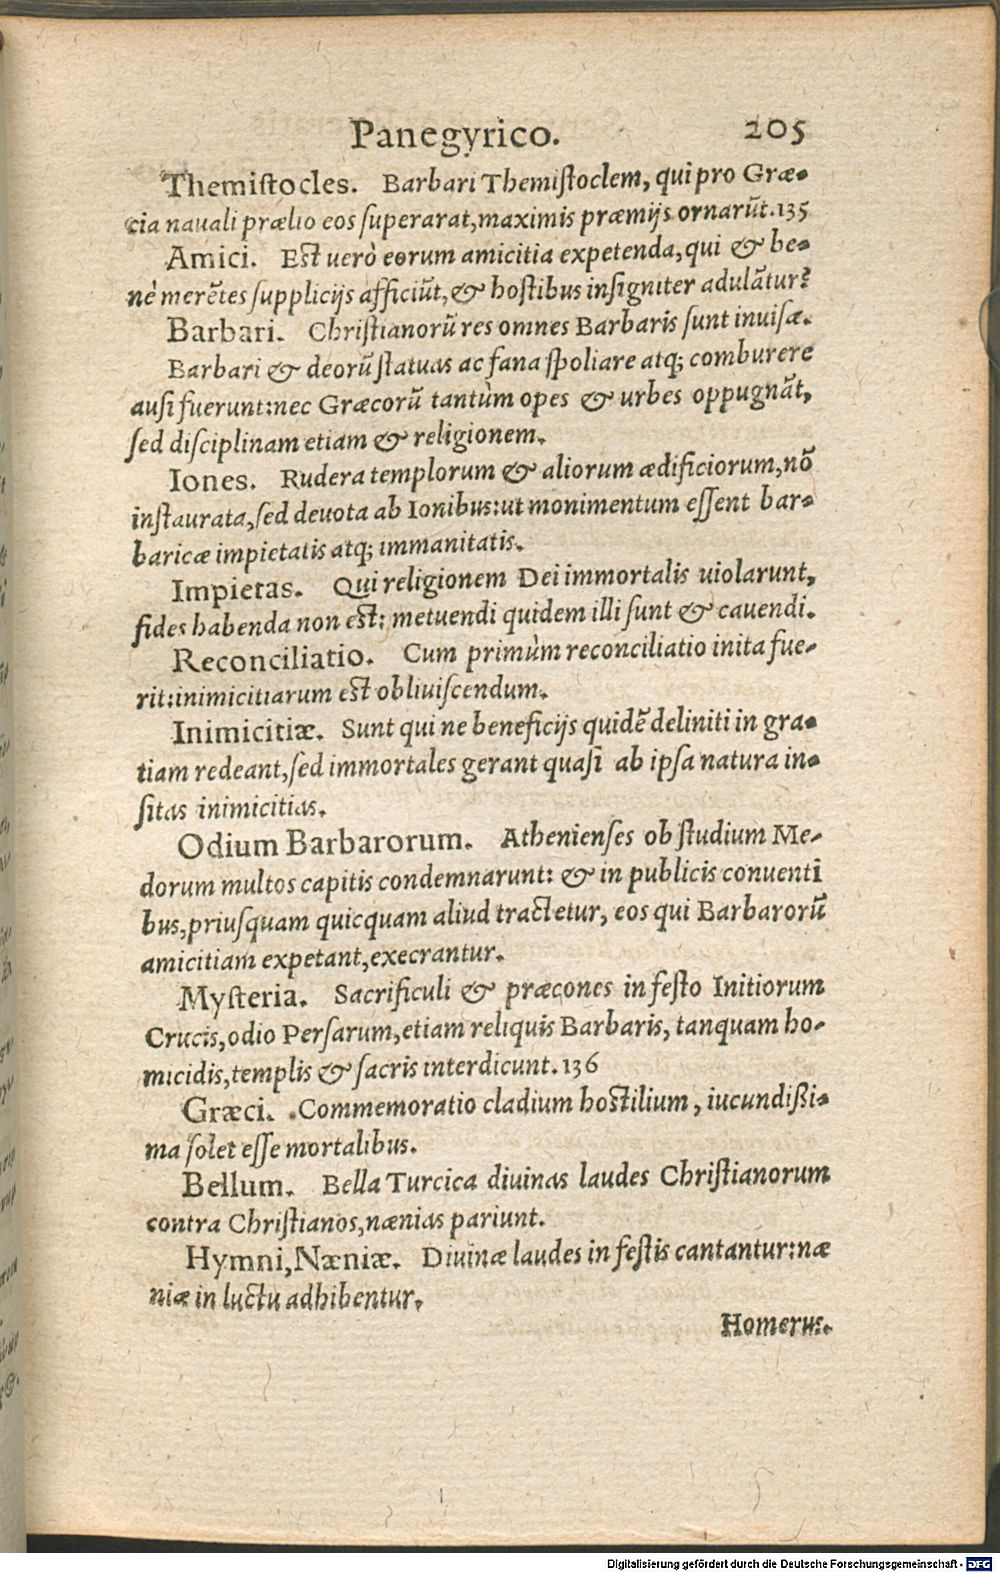 Panegyrico. 205
Themiſtocles. Barbari Themiſtoclem, qui pro Græ-
cia nauali prælio eos ſuperarat, maximis præmijs ornarūt. 135
Amici. Est uerò eorum amicitia expetenda, qui & be-
nè merētes ſupplicijs afficiūt, & hoſtibus inſigniter adulātur?
Barbari. Chriſtianorū res omnes Barbaris ſunt inuiſæ.
Barbari & deorū ſtatuas ac fana ſpoliare atq; comburere
auſi fuerunt: nec Græcorū tantùm opes & urbes oppugnāt,
ſed diſciplinam etiam & religionem.
Iones. Rudera templorum & aliorum ædificiorum, nō
inſtaurata, ſed deuota ab Ionibus: ut monimentum eſſent bar-
baricæ impietatis atq; immanitatis.
Impietas. Qui religionem Dei immortalis uiolarunt,
fides habenda non est: metuendi quidem illi ſunt & cauendi.
Reconciliatio. Cum primùm reconciliatio inita fue-
rit: inimicitiarum est obliuiſcendum.
Inimicitiæ. Sunt qui ne beneficijs quidē deliniti in gra-
tiam redeant, ſed immortales gerant quaſi ab ipſa natura in-
ſitas inimicitias.
Odium Barbarorum. Athenienſes ob ſtudium Me-
dorum multos capitis condemnarunt: & in publicis conuenti
bus, priuſquam quicquam aliud tractetur, eos qui Barbarorū
amicitiam expetant, execrantur.
Myſteria. Sacrificuli & præcones in feſto Initiorum
Crucis, odio Perſarum, etiam reliquis Barbaris, tanquam ho-
micidis, templis & ſacris interdicunt. 136
Græci. Commemoratio cladium hostilium, iucundißi-
ma ſolet eſſe mortalibus.
Bellum. Bella Turcica diuinas laudes Chriſtianorum
contra Chriſtianos, nænias pariunt.
Hymni, Næniæ. Diuinæ laudes in feſtis cantantur: næ
niæ in luctu adhibentur.
Homerus.
Digitalisierung gefördert durch die Deutsche Forschungsgemeinschaft - DFG